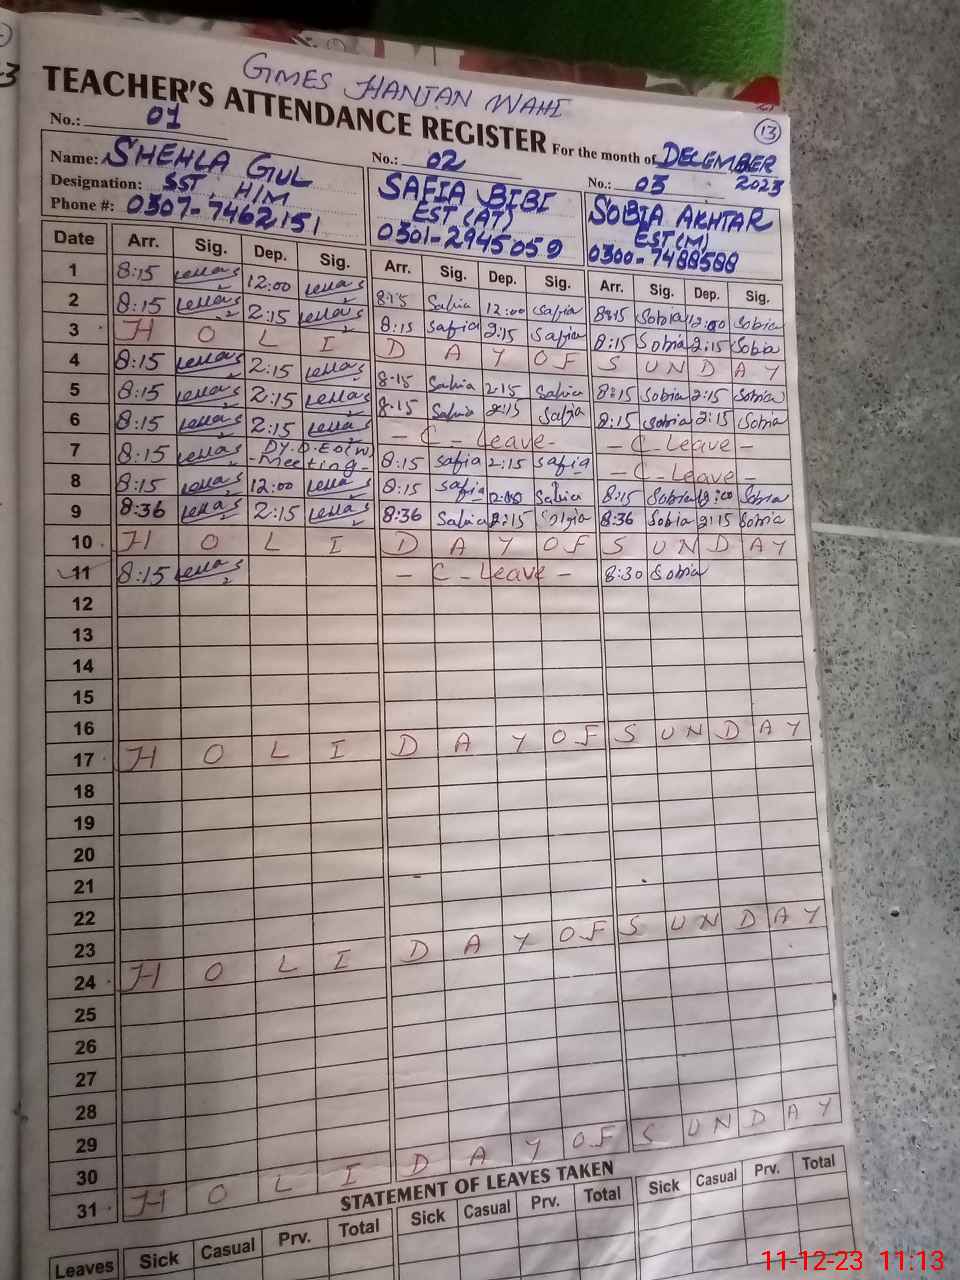 GMES HANJAN WAHI
TEACHER'S ATTENDANCE REGISTER For the month of DECEMBER 2023
13
No.: 01 No.: 02 No.: 03
Name: SHEHLA GUL SAFIA BIBI SOBIA AKHTAR
Designation: SST, H/M EST (AT) EST (M)
Phone #: 0307-7462151 0301-2945059 0300-7488588
Date Arr. Sig. Dep. Sig. Arr. Sig. Dep. Sig. Arr. Sig. Dep. Sig.
1 8:15 12:00 8:15 Safia 12:00 Safia 8:15 Sobia 12:00 Sobia
2 8:15 2:15 8:15 Safia 2:15 Safia 8:15 Sobia 2:15 Sobia
3 H O L I D A Y OF S U N D A Y
4 8:15 2:15 8:15 Safia 2:15 Safia 8:15 Sobia 2:15 Sobia
5 8:15 2:15 8:15 Safia 2:15 Safia 8:15 Sobia 2:15 Sobia
6 8:15 2:15 - C - Leave - - C - Leave -
7 8:15 DY.D.EO(W) -Meeting- 8:15 Safia 2:15 Safia - C - Leave -
8 8:15 12:00 8:15 Safia 12:00 Safia 8:15 Sobia 12:00 Sobia
9 8:36 2:15 8:36 Safia 2:15 Safia 8:36 Sobia 2:15 Sobia
10 H O L I D A Y OF S U N D A Y
11 8:15 - C - Leave - 8:30 Sobia
12
13
14
15
16
17 H O L I D A Y OF S U N D A Y
18
19
20
21
22
23
24 H O L I D A Y OF S U N D A Y
25
26
27
28
29
30
31 H O L I D A Y OF S U N D A Y
STATEMENT OF LEAVES TAKEN
Leaves Sick Casual Prv. Total Sick Casual Prv. Total Sick Casual Prv. Total
11-12-23 11:13